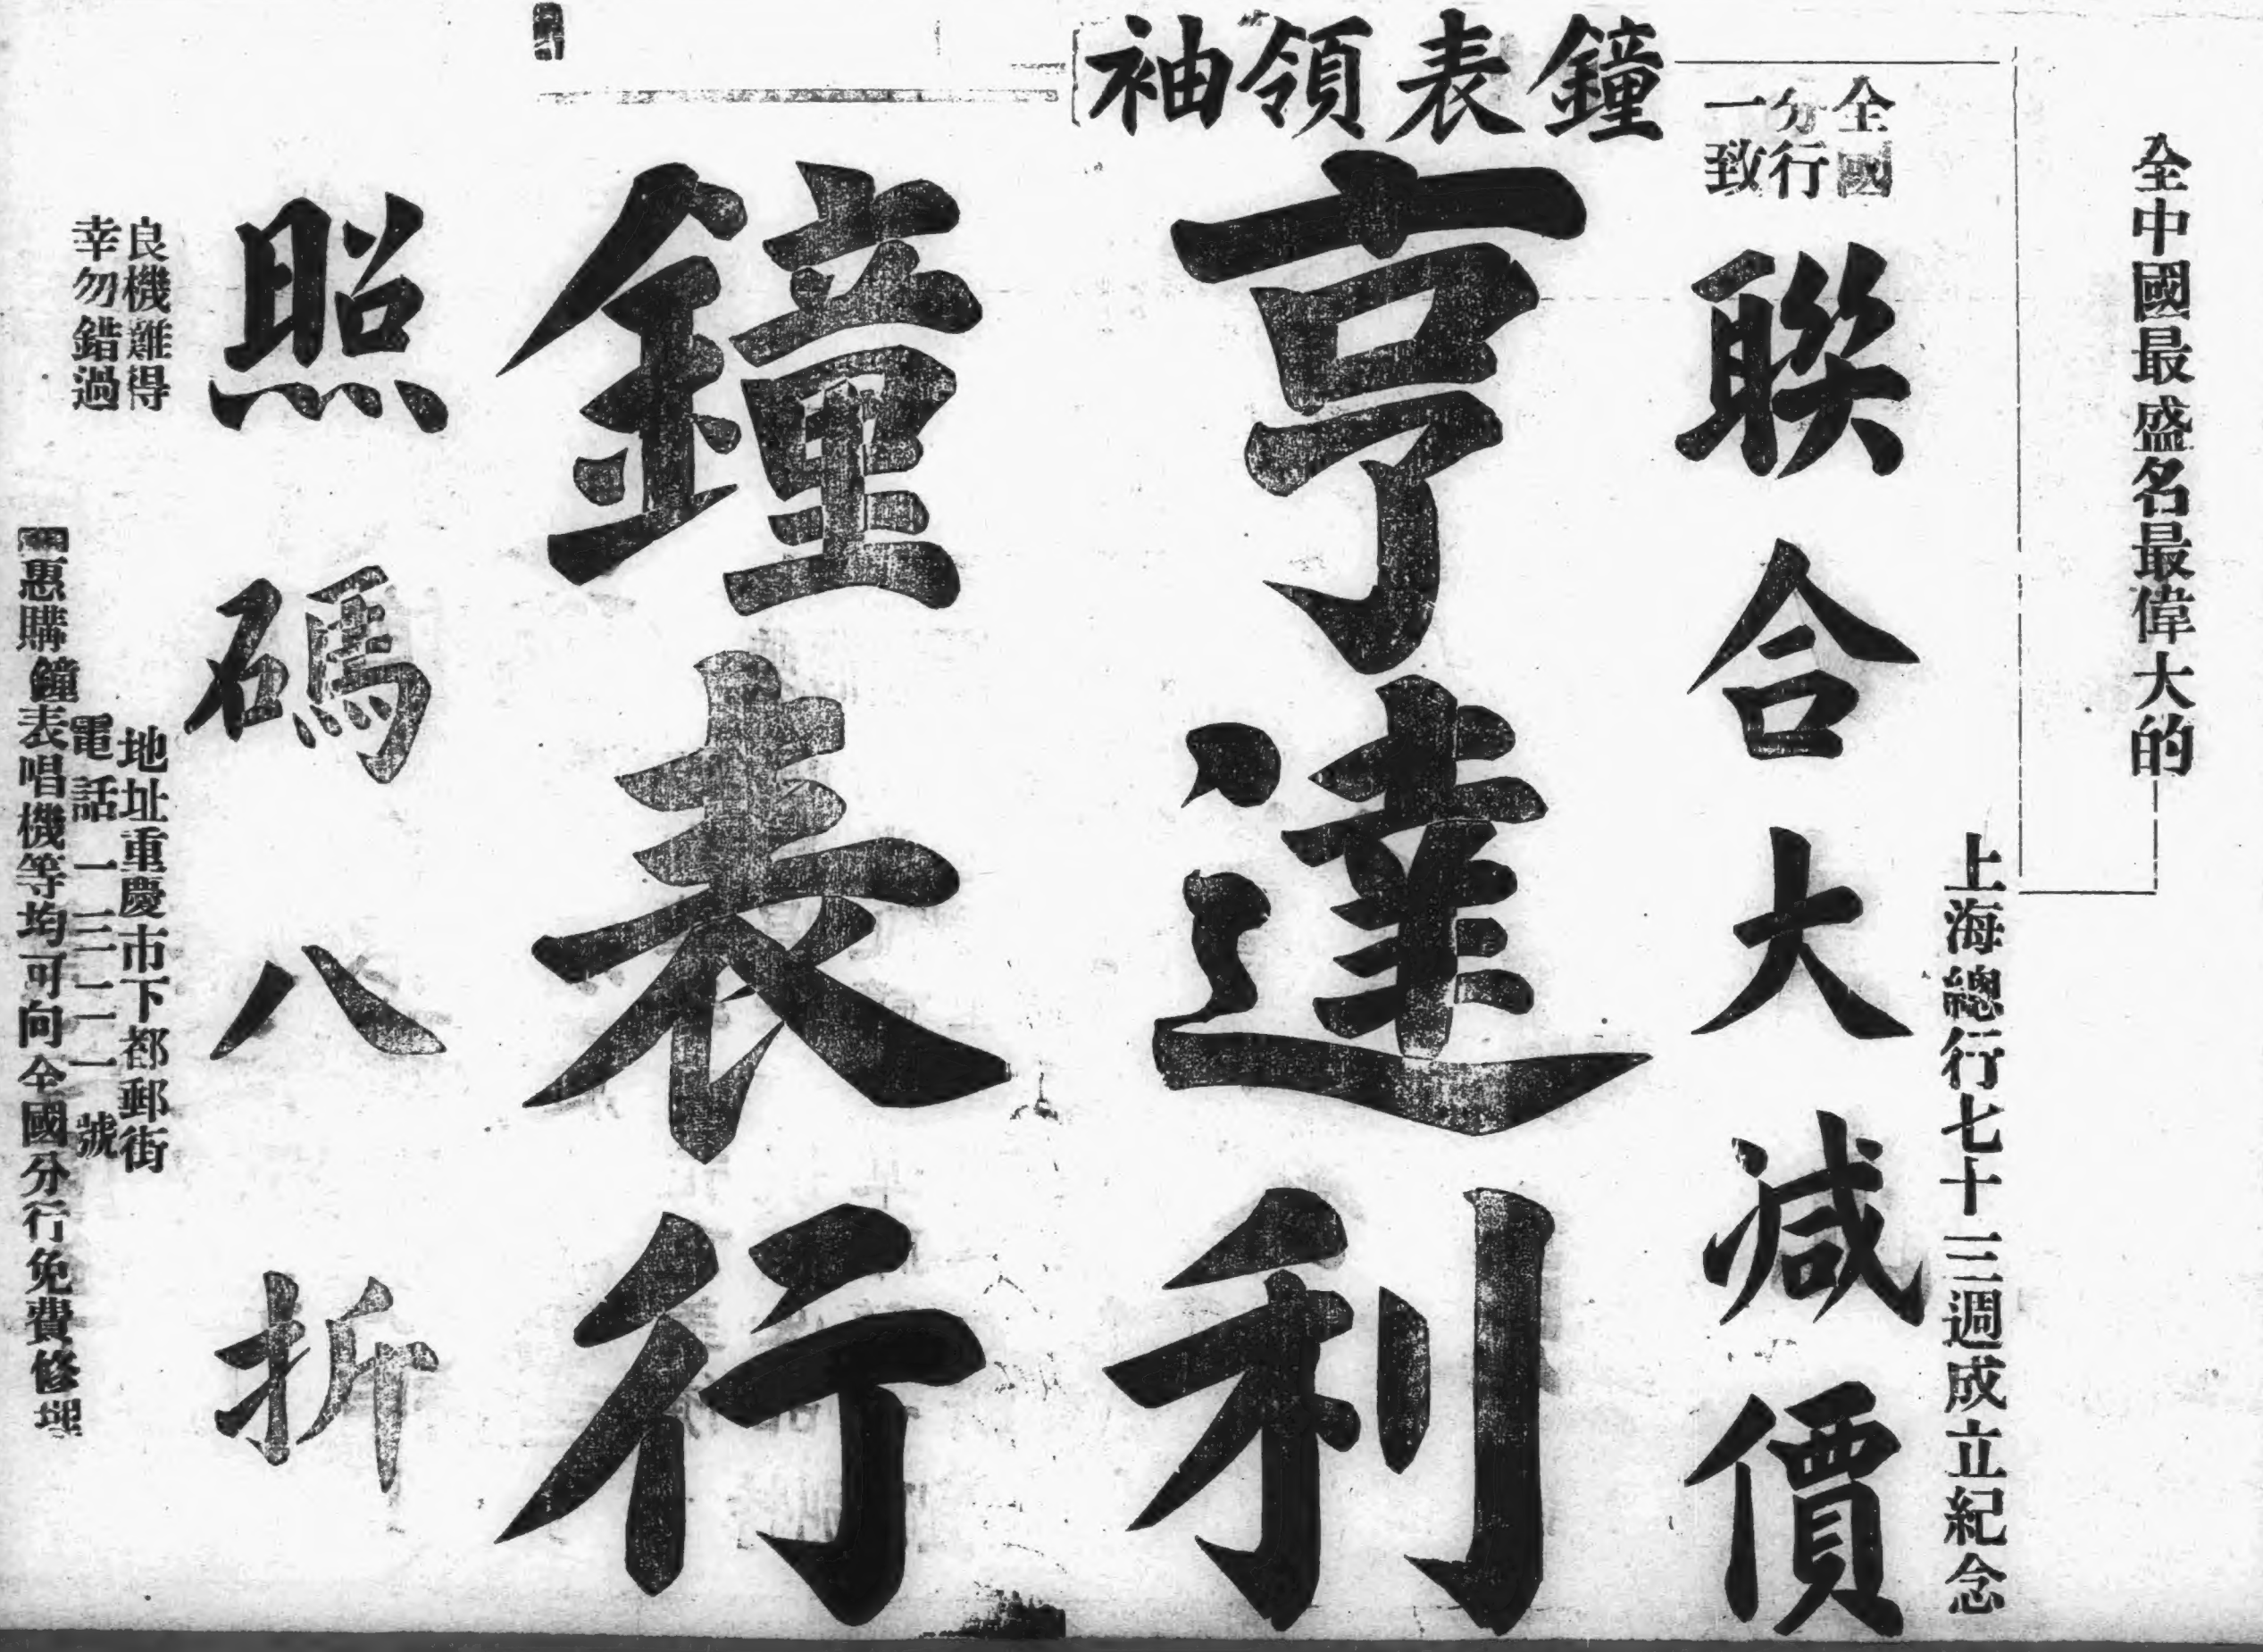 全中國最盛名最偉大的
上海總行七十三週成立紀念
全國
分行
一致
聯合大減價
鐘表領袖
亨達利
鐘表行
照碼八折
良機難得
幸勿錯過
地址重慶市下都郵街
電話 一三一一一號
惠購鐘表唱機等均可向全國分行免費修理